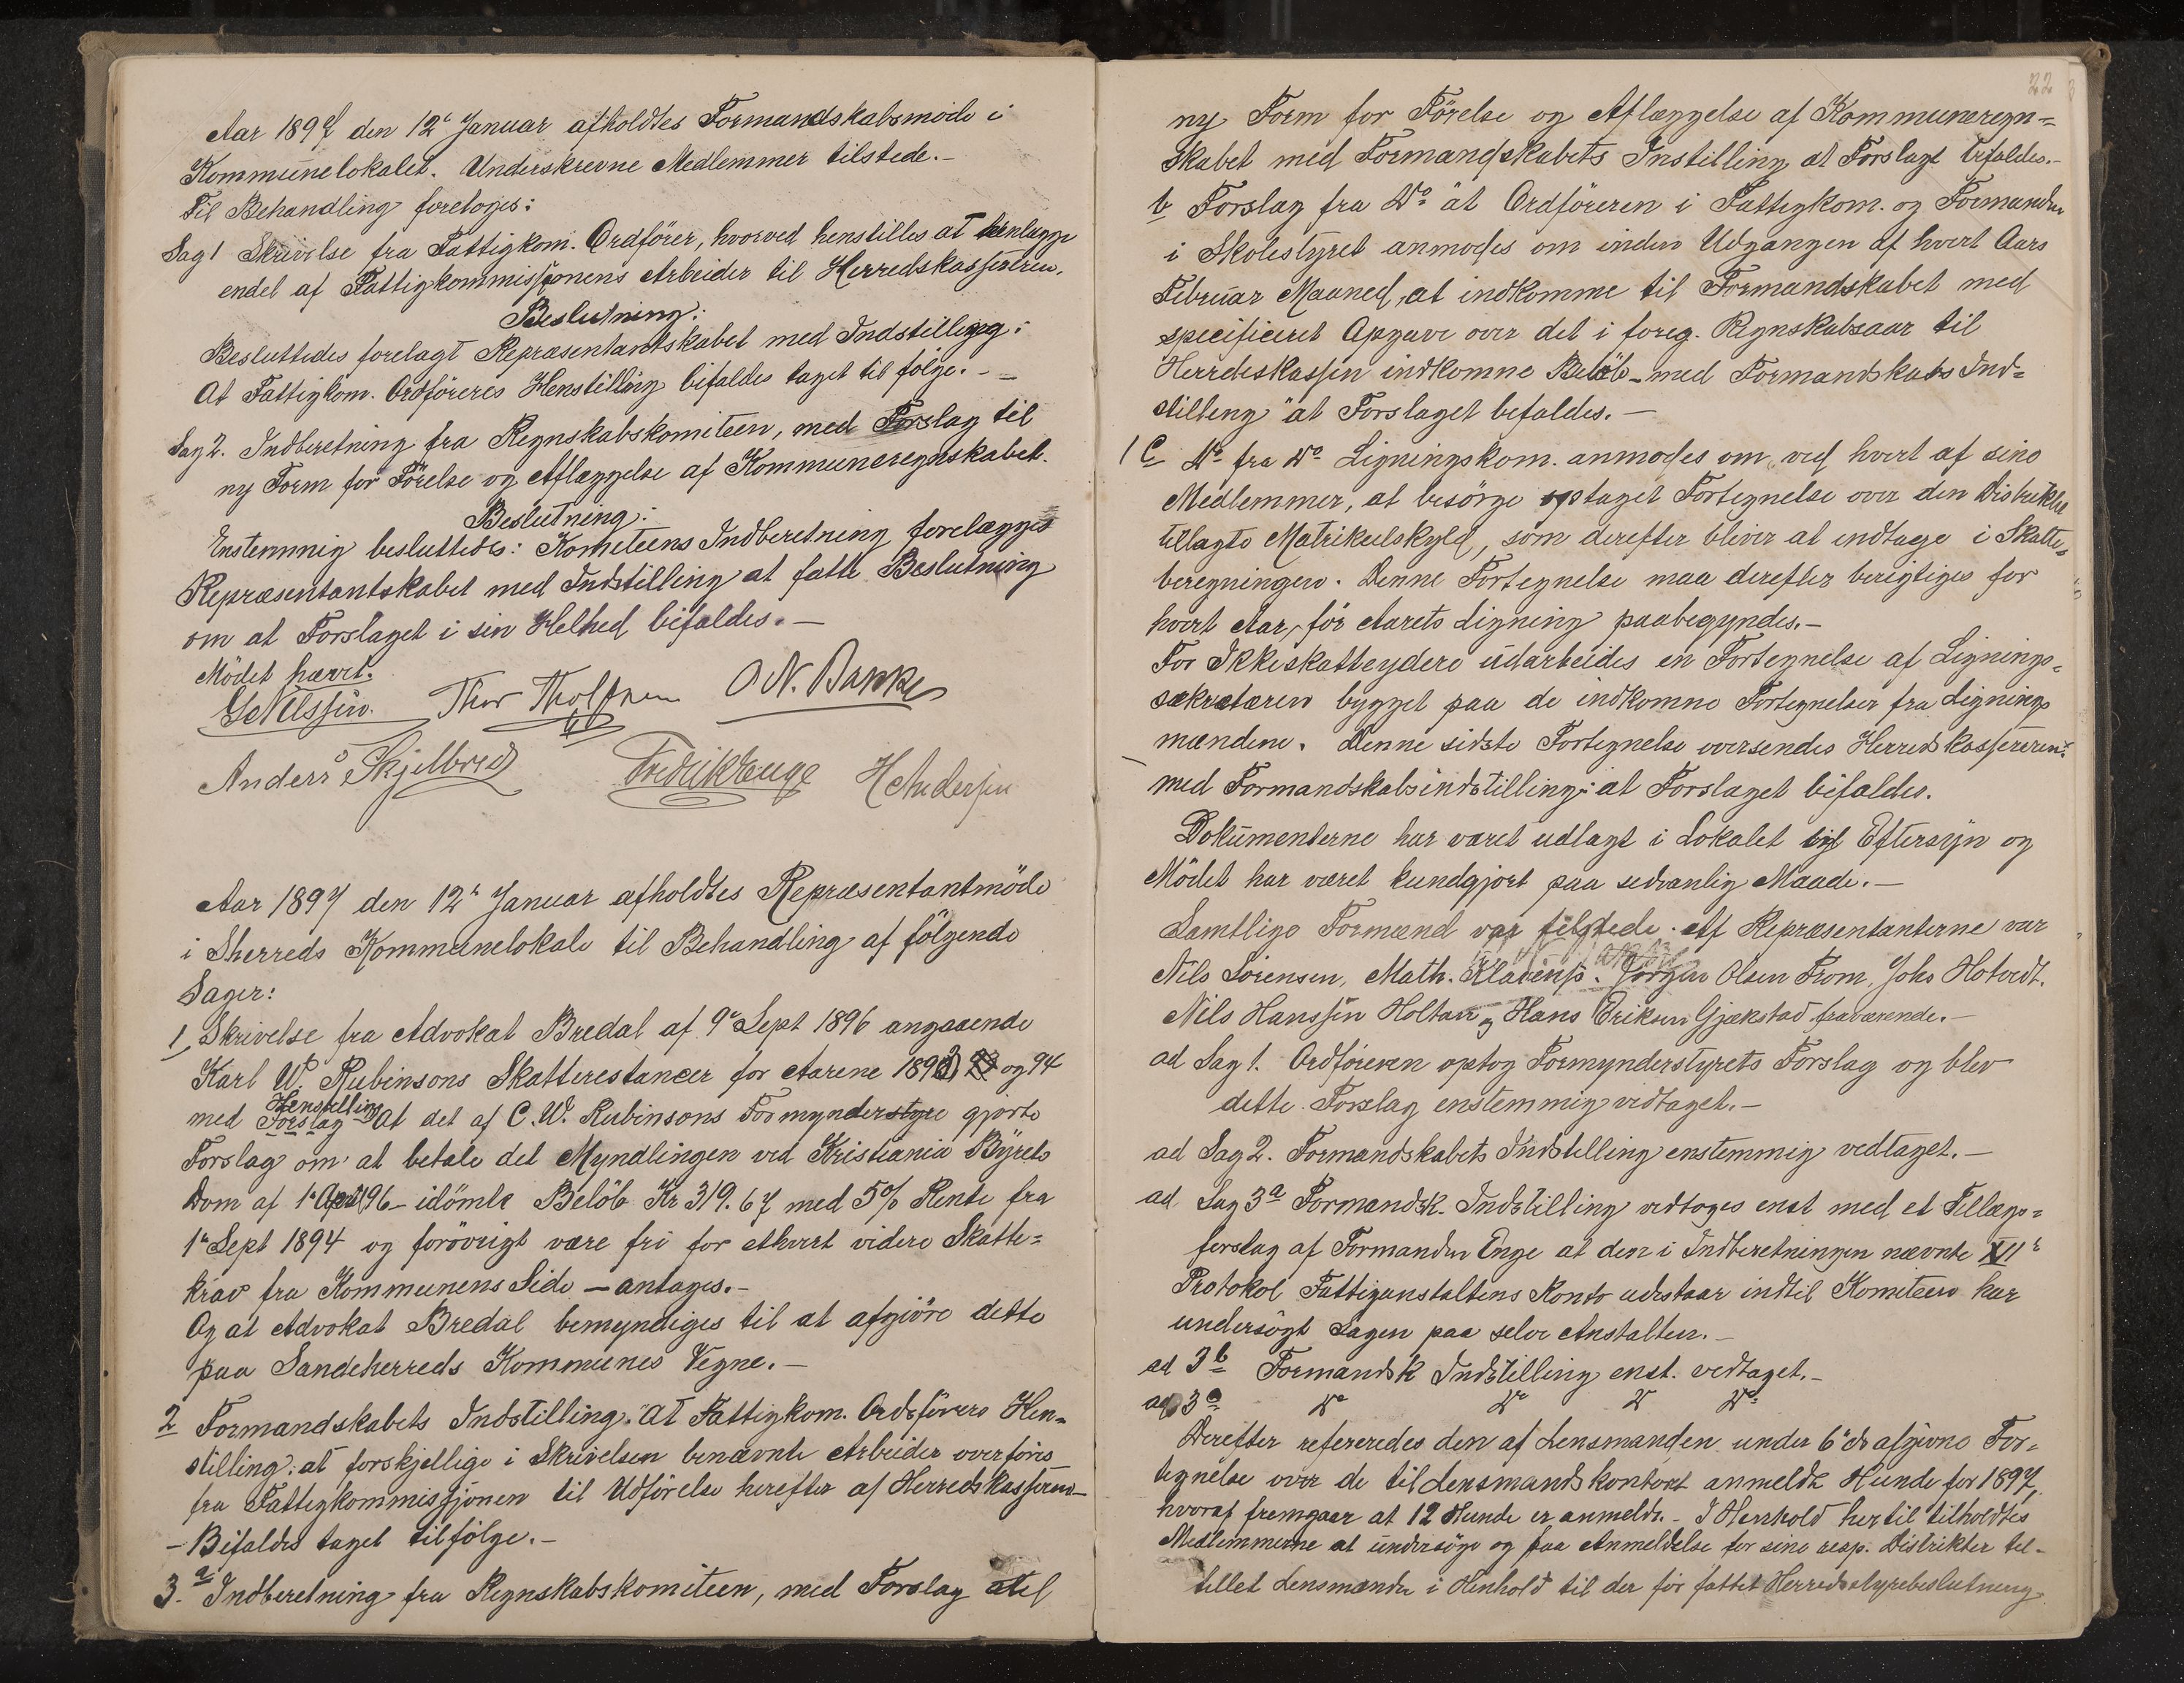 Aar 1897 den 12te Januar afholdtes Formandskabsmöde i
Kommunelokalet. Underskrevne Medlemmer tilstede.-
Til Behandling foretoges:
Sag 1 Skrivelse fra Fattigkom. Ordförer, hvorved henstilles at henlægge
endel af Fattigkommissjonens Arbeider til Herredskasseren.
Beslutning:
Besluttedes forelagt Repræsentantskabet med Indstilling:
At Fattigkom. Ordföreres Henstilling bifaldes taget til følge. -
Sag 2. Indberetning fra Regnskabskomiteen, med Forslag til
ny Form for Förelse og Aflæggelse af Kommuneregnskabet.
Beslutning:
Enstemmig besluttedes: Komiteens Indberetning forelægges
Repræsentantskabet med Indstilling at fatte Beslutning
om at Forslaget i sin Helhed bifaldes. -
Mödet hævet.
Nilssen. Thor O. N. Banke
Anders Skjelbred Fredrik Enge H Andersen
Aar 1897 den 12te Januar afholdtes Repræsentantmöde
i Sherreds Kommunelokale til Behandling af fölgende
Sager:
1, Skrivelse fra Advokat Bredal af 9de Sept 1896 angaaende
Karl W. Rubinsons Skatterestancer for Aarene 1893 og 94
med Forslag Henstilling At det af C. W. Rubinsons Formynderstyre gjorte
Forslag om at betale det Myndlingen ved Kristiania Byrets
Dom af 1 April 96 - idömte Belöb Kr 319.67 med 5% Rente fra
1ste Sept 1894 og forövrigt være fri for ethvert videre Skatte=
krav fra Kommunens Side - antages.-
Og at Advokat Bredal bemyndiges til at afgjöre dette
paa Sandeherreds Kommunes Vegne.-
2 Formandskabets Indstilling: "At Fattigkom. Ordförers Hen=
stilling: at forskjellige i Skrivelsen benævnte Arbeider overföres
fra Fattigkommissjonen til Udförelse herefter af Herredskasseren
- Bifaldes taget tilfölge.-
3.a Indberetning fra Regnskabskomiteen, med Forslag til
22
ny Form for Förelse og Aflæggelse af Kommuneregn=
skabet med Formandskabets Instilling at Forslaget bifaldes.-
b Forslag fra Do at Ordföreren i Fattigkom. og Formanden
i Skolestyret anmodes om inden Udgangen af hvert Aars
Februar Maaned, at indkomme til Formandskabet med
specificeret Opgave over det i foreg. Regnskabsaar til
Herredskassen indkomne Belöb - med Formandskabs Ind=
stilling "at Forslaget befaldes. -
1 c Do fra Do Ligningskom. anmodes om, ved hvert af sine
Medlemmer, at besörge optaget Fortegnelse over den Distriktet
tillagte Matrikulskyld, som derefter bliver at indtage i Skatte=
beregningen. Denne Fortegnelse maa derefter berigtiges for
hvert Aar, för Aarets Ligning paabegyndes.-
For Ikkeskatteydere udarbeides en Fortegnelse af Lignings=
sekretæren bygget paa de indkomne Fortegnelser fra Lignings
mændene. Denne sidste Fortegnelse oversendes Herredskasseren
med Formandskabsindstilling: at Forslaget bifaldes.
Dokumenterne har været udlagt i Lokalet til Eftersyn og
Mödet har været kundgjort paa sedvanlig Maade.-
Samtlige Formænd var tilstede. Af Repræsentanterne var
Nils Sörensen, Math. Klavenes. Jørgen Olsen From, Johs Hotvedt.
Nils Hanssen Holtan og Hans Eriksen Gjekstad fraværende.-
ad Sag 1. Ordföreren optog Formynderstyrets Forslag og blev
dette Forslag enstemmig vedtaget.-
ad Sag 2. Formandskabets Indstilling enstemmig vedtaget.-
ad Sag 3a Formandsk. Indstilling vedtoges enst med et Tillægs=
forslag af Formanden Enge at den i Indberetningen nævnte XIIte
Protokol Fattiganstaltens Konto udstaar indtil Komiteen har
undersögt Sagen paa selve Anstalten.-
ad 3b Formandsk Indstilling enst. vedtaget.-
ad 3c Do Do Do Do
Derefter refereredes den af Lensmanden under 6te ds afgivne For=
tegnelse over de til Lensmandskontoret anmeldte Hunde for 1897,
hvoraf fremgaar at 12 Hunde er anmeldt. - I Henhold hertil tilholdtes
Medlemmerne at undersöge og paa Anmeldelse for sine resp. Distrikter til-
stillet Lensmanden i Henhold til der för fattet Herredsstyrebeslutning